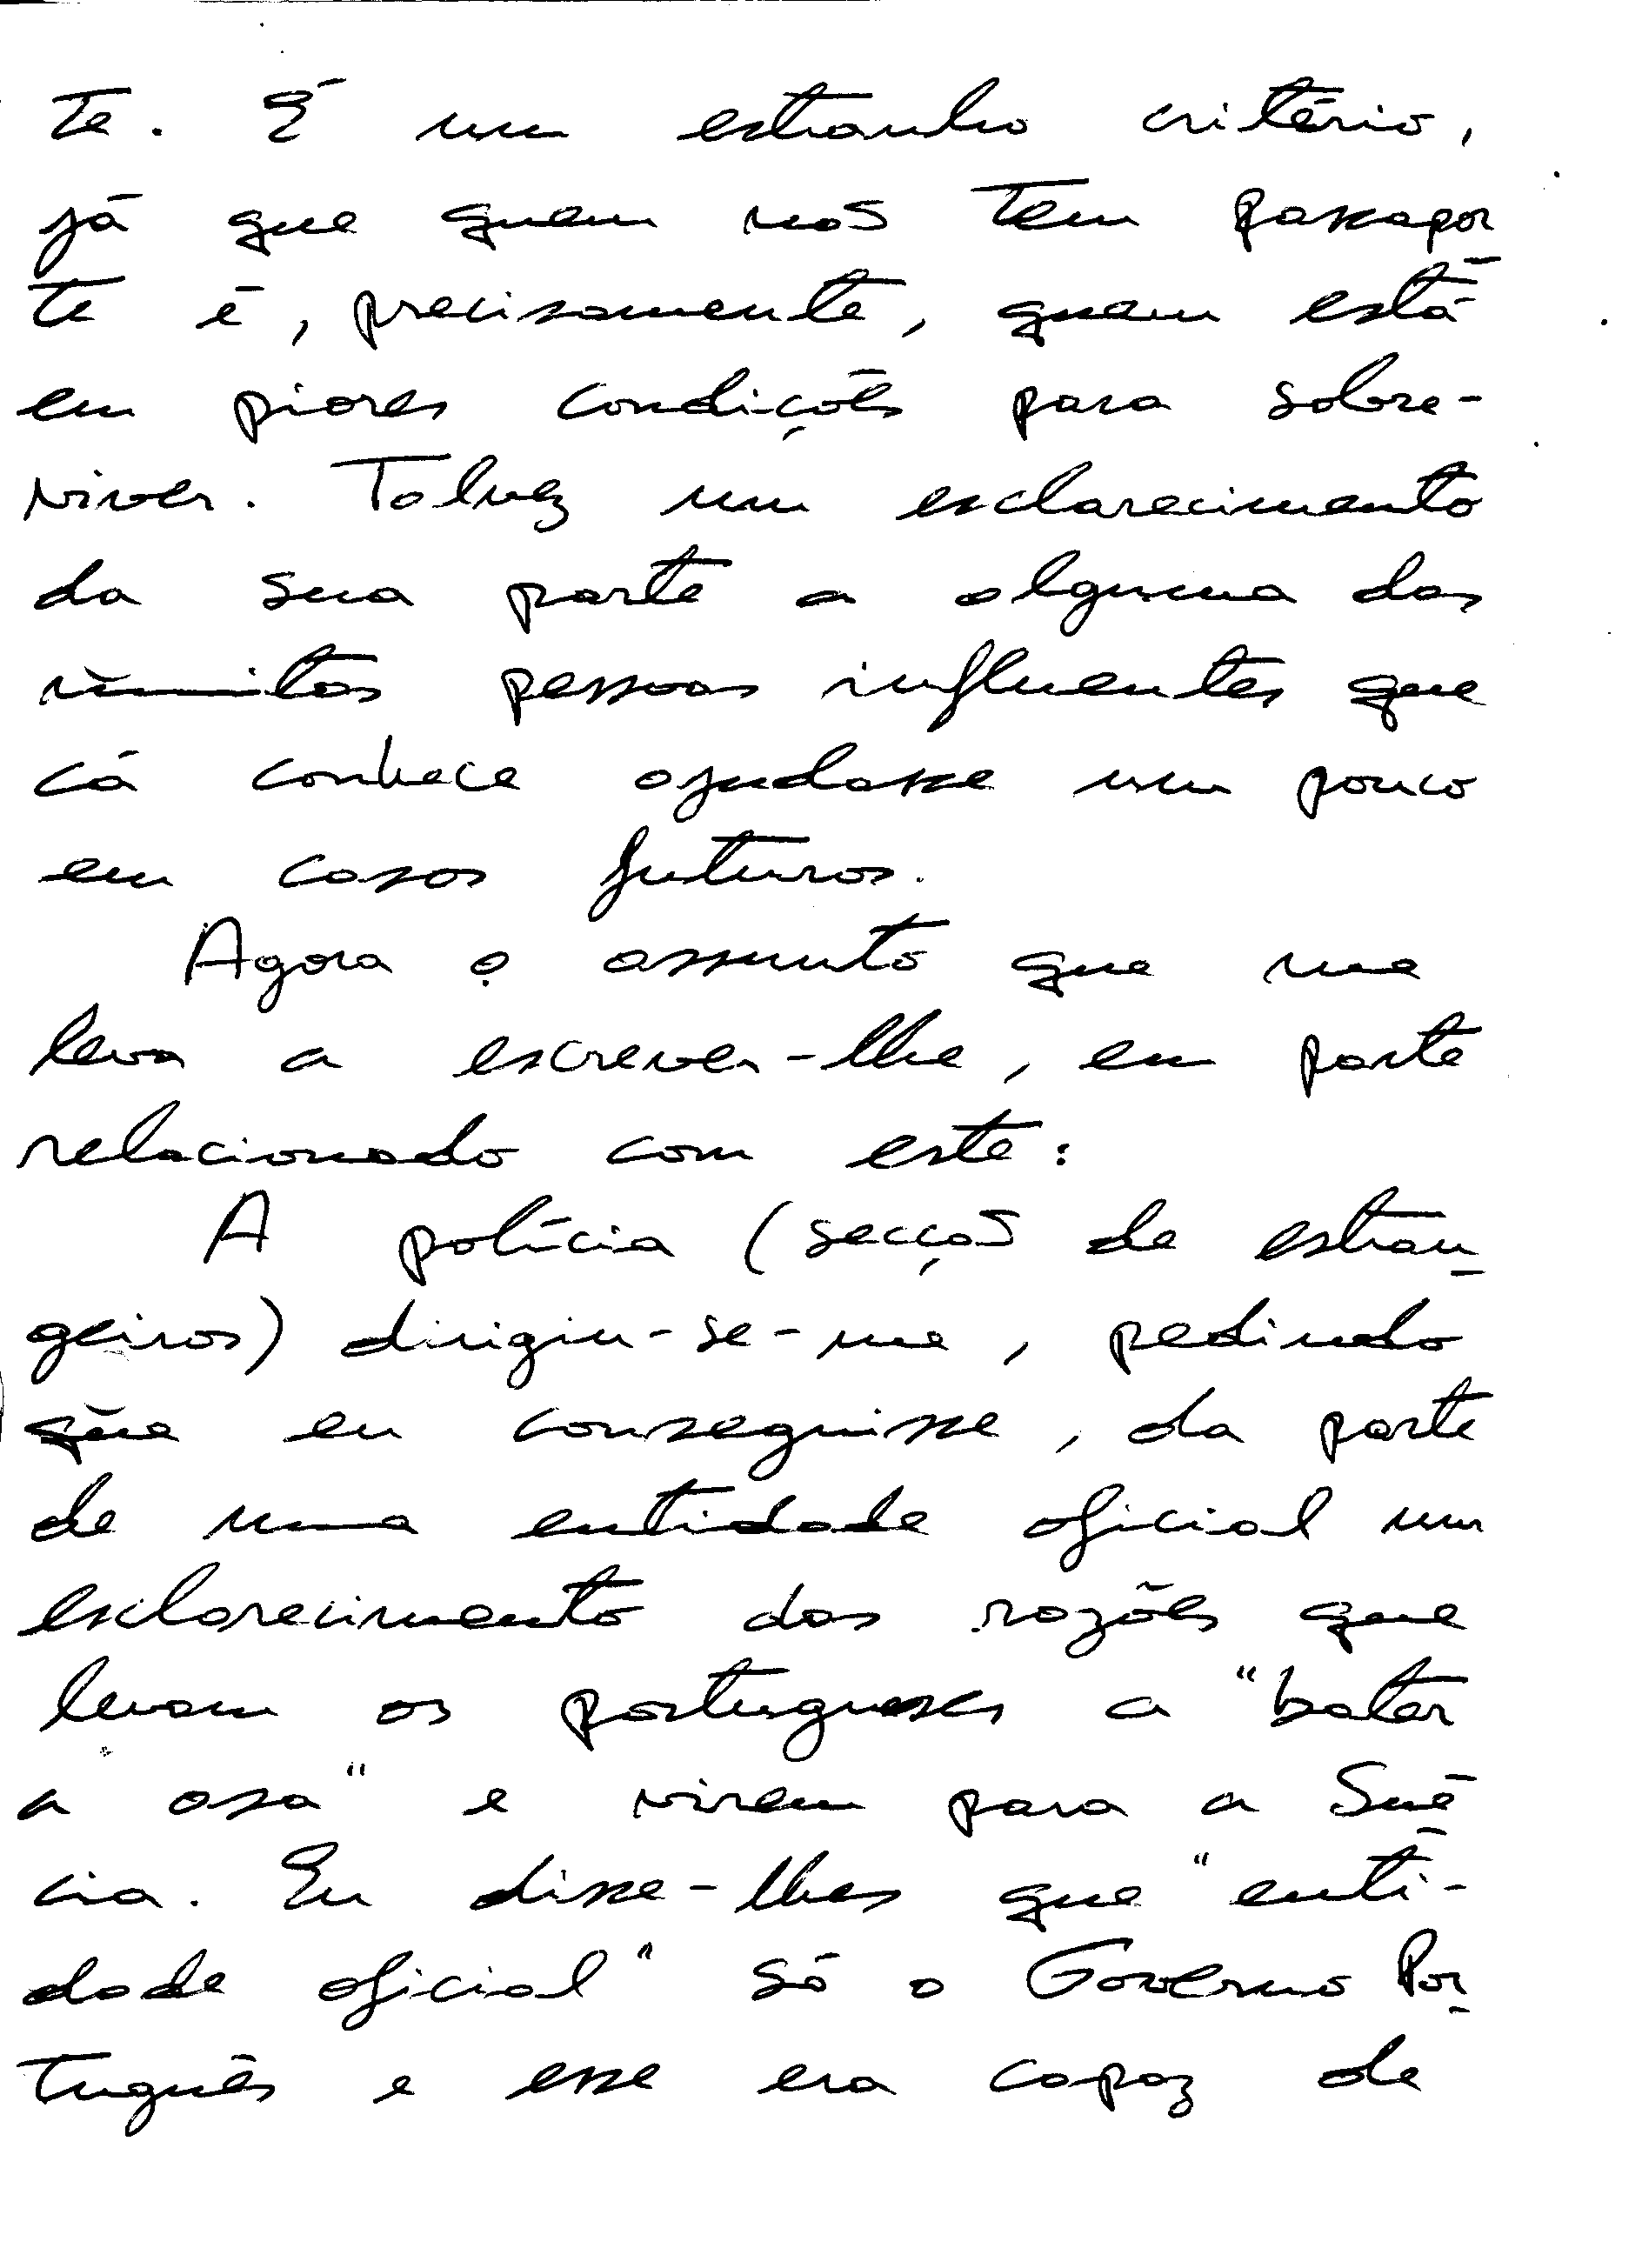 te. É um estranho critério,
já que quem não tem passapor
te é, precisamente, quem está
em piores condições para sobre-
viver. Talvez um esclarecimento
da sua parte a alguma das
muitas pessoas influentes que
cá conhece ajudasse um pouco
em casos futuros.
Agora o assunto que me
leva a escrever-lhe, em parte
relacionado com este:
A polícia (secção de estran
geiros) dirigiu-se-me, pedindo
que eu conseguisse, da parte
de uma entidade oficial um
esclarecimento das razões que
levam os portugueses a "bater
a asa" e virem para a Sué
cia. Eu disse-lhes que "enti-
dade oficial" só o Governo Por
tuguês e esse era capaz de